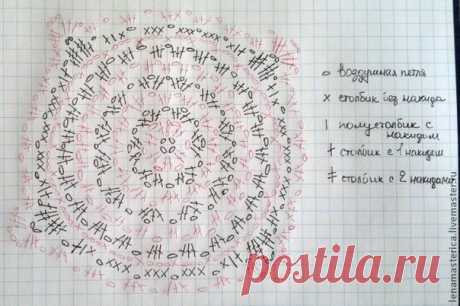 o воздушная петля
x столбик без накида
| полустолбик с
накидом
† столбик с 1 накидом
‡ столбик с 2 накидами
postila.ru
lenamasterica.livemaster.ru